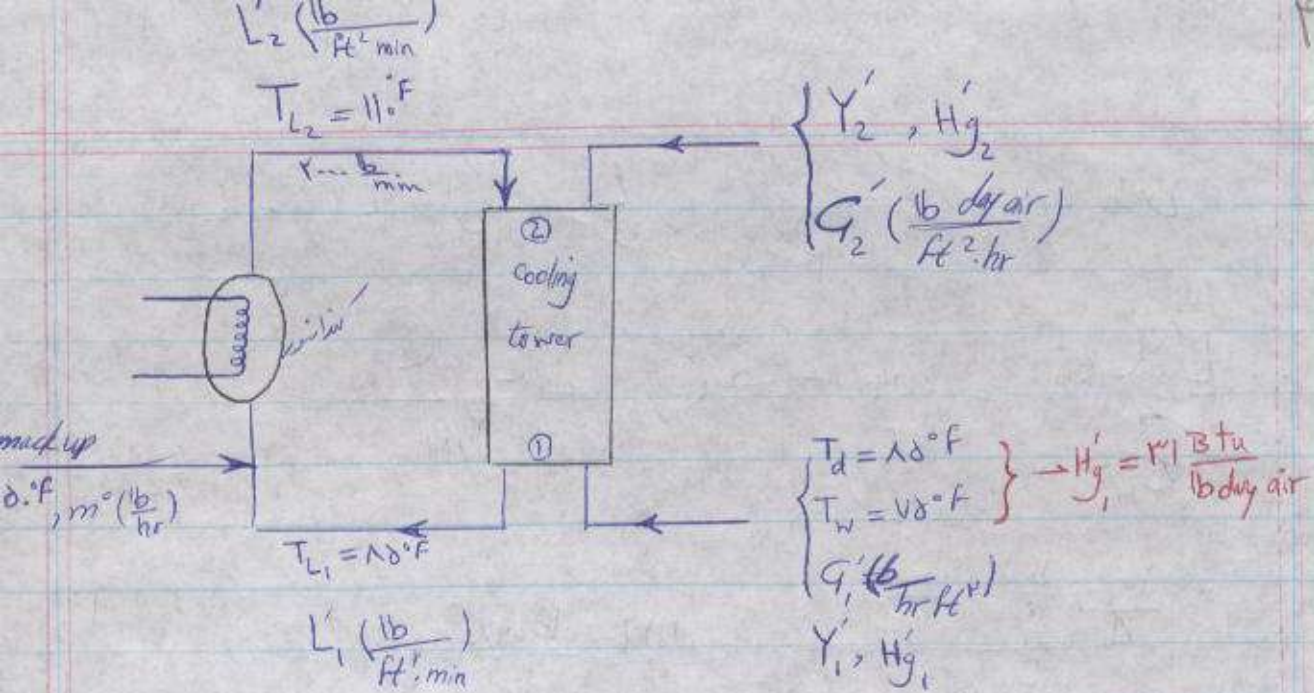 L'₂ (lb / ft² min)
T_L₂ = ۱۱۰°F
۲۰۰۰ lb / min
Y'₂ , H'g₂
G'₂ (lb dry air / ft². hr)
②
Cooling
tower
①
mack up
۵۰°F, m° (lb / hr)
T_L₁ = ۸۵°F
L'₁ (lb / ft². min)
T_d = ۸۵°F
T_w = ۷۵°F
→ H'g₁ = ۳۱ Btu / lb dry air
G'₁ (lb / hr ft²)
Y'₁ , H'g₁